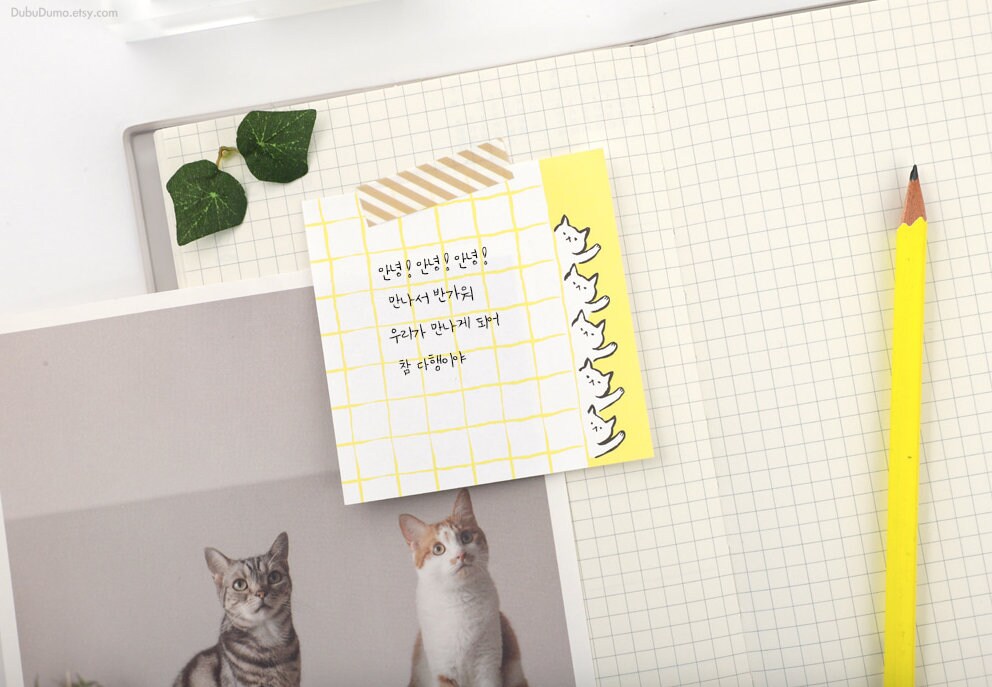 DubuDumo.etsy.com
안녕! 안녕! 안녕!
만나서 반가워
우리가 만나게 되어
참 다행이야